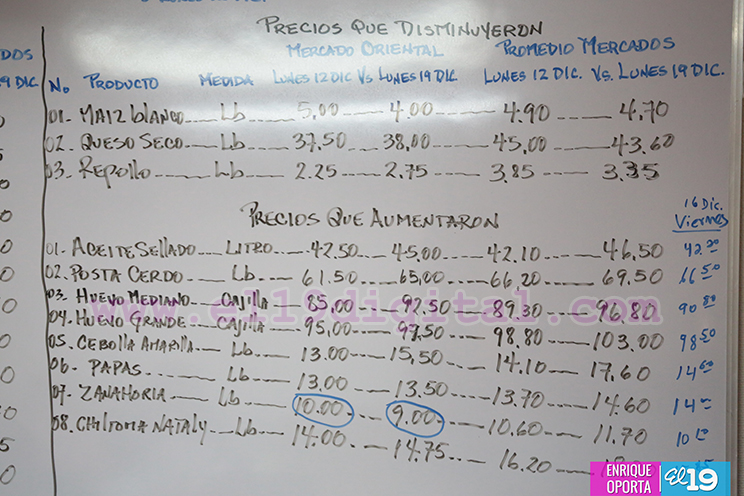 PRECIOS QUE DISMINUYERON
MERCADO ORIENTAL PROMEDIO MERCADOS
No. PRODUCTO MEDIDA LUNES 12 DIC Vs LUNES 19 DIC. LUNES 12 DIC. Vs. LUNES 19 DIC.
01. MAIZ blanco Lb 5,00 4.00 4.90 4,70
02. QUESO SECO Lb 37,50 38,00 45,00 43.60
03. Repollo Lb 2.25 2.75 3,85 3,35
PRECIOS QUE AUMENTARON 16 Dic. Viernes
01. ACEITE SELLADO LITRO 42.50 45,00 42.10 46,50 42.20
02. POSTA CERDO Lb 61.50 65,00 66,20 69.50 66.50
03. HUEVO MEDIANO CAJILLA 85,00 92.50 89.30 96,80 90.80
04. HUEVO GRANDE CAJILLA 95,00 97,50 98,80 103,00 98.50
05. CEBOLLA AMARILLA Lb 13.00 15,50 14.10 17,60 14.60
06. PAPAS Lb 13,00 13.50 13.70 14.60
07. ZANAHORIA Lb 10.00 9.00 10.60 11.70
08. CHILTOMA NATALY Lb 14.00 14.75 16.20
www.el19digital.com
ENRIQUE OPORTA El 19
DOS
19 DIC.